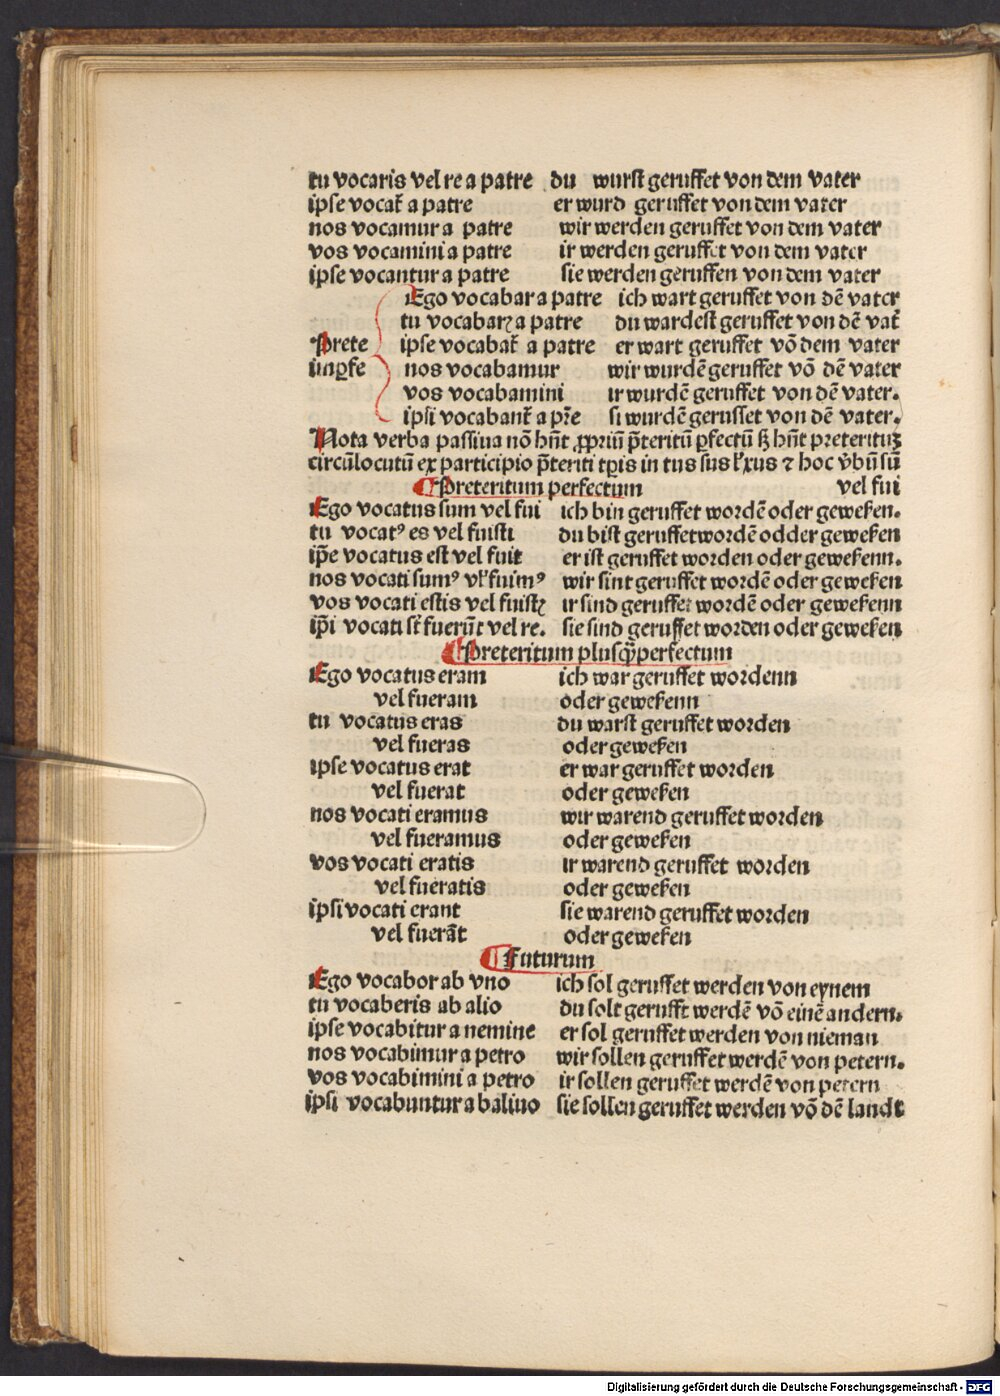 tu vocaris vel re a patre du wurst geruffet von dem vater
ipse vocat̄ a patre er wurd geruffet von dem vater
nos vocamur a patre wir werden geruffet von dem vater
vos vocamini a patre ir werden geruffet von dem vater
ipse vocantur a patre sie werden geruffen von dem vater
Ego vocabar a patre ich wart geruffet von dē vater
tu vocabarꝫ a patre du wardest geruffet von dē vat̄
Prete ipse vocabat̄ a patre er wart geruffet vō dem vater
imꝑfe nos vocabamur wir wurdē geruffet vō dē vater
vos vocabamini ir wurdē geruffet von dē vater.
ipsi vocabant̄ a pr̄e si wurdē gerusset von dē vater.
Nota verba passiua nō hn̄t ꝓpriū p̄teritū ꝑfectū sꝫ hn̄t preterituꝫ
circūlocutū ex participio p̄teriti tp̄is in tus sus l̓ xus ⁊ hoc v̓bū sū
Preteritum perfectum vel fui
Ego vocatus sum vel fui ich bin geruffet wordē oder geweßen.
tu vocatꝰ es vel fuisti du bist geruffet wordē odder geweßen
ip̄e vocatus est vel fuit er ist geruffet worden oder geweßenn.
nos vocati sumꝰ vl̓ fuimꝰ wir sint geruffet wordē oder geweßen
vos vocati estis vel fuistꝫ ir sind geruffet wordē oder geweßenn
ip̄i vocati sт̄ fuerūt vel re. sie sind geruffet worden oder geweßen
Preteritum plusqꝫperfectum
Ego vocatus eram ich war geruffet wordenn
vel fueram oder geweßenn
tu vocatus eras du warst geruffet worden
vel fueras oder geweßen
ipse vocatus erat er war geruffet worden
vel fuerat oder geweßen
nos vocati eramus wir warend geruffet worden
vel fueramus oder geweßen
vos vocati eratis ir warend geruffet worden
vel fueratis oder geweßen
ipsi vocati erant sie warend geruffet worden
vel fuerāt oder geweßen
Futurum
Ego vocabor ab vno ich sol geruffet werden von eynem
tu vocaberis ab alio du solt gerufft werdē vō einē andern.
ipse vocabitur a nemine er sol geruffet werden von nieman
nos vocabimur a petro wir sollen geruffet werdē von petern.
vos vocabimini a petro ir sollen geruffet werdē von petern
ipsi vocabuntur a baliuo sie sollen geruffet werden vō dē landt
Digitalisierung gefördert durch die Deutsche Forschungsgemeinschaft - DFG